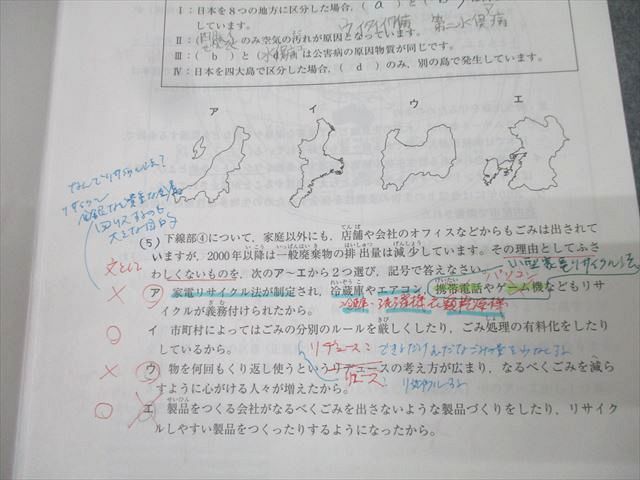 Ⅰ：日本を８つの地方に区分した場合，（ a ）と（ b ）は
しています。
イタイイタイ病 第二水俣病
Ⅱ：（ ）のみ空気の汚れが原因となっています。
Ⅲ：（ b ）と（ d ）は公害病の原因物質が同じです。
Ⅳ：日本を四大島で区分した場合，（ d ）のみ，別の島で発生しています。
ア イ ウ エ
(5) 下線部④について，家庭以外にも，店舗や会社のオフィスなどからもごみは出されて
いますが，2000年以降は一般廃棄物の排出量は減少しています。その理由としてふさ
わしくないものを，次のア～エから２つ選び，記号で答えなさい。
パソコン 小型家電リサイクル法
文として
× ア 家電リサイクル法が制定され，冷蔵庫やエアコン，携帯電話やゲーム機などもリサ
イクルが義務付けられたから。
○ イ 市町村によってはごみの分別のルールを厳しくしたり，ごみ処理の有料化をしたり
しているから。
リデュース：できるだけむだなごみの量を少なくする
× ウ 物を何回もくり返し使うというリデュースの考え方が広まり，なるべくごみを減ら
すように心がける人々が増えたから。
リユース：
○ エ 製品をつくる会社がなるべくごみを出さないような製品づくりをしたり，リサイク
ルしやすい製品をつくったりするようになったから。